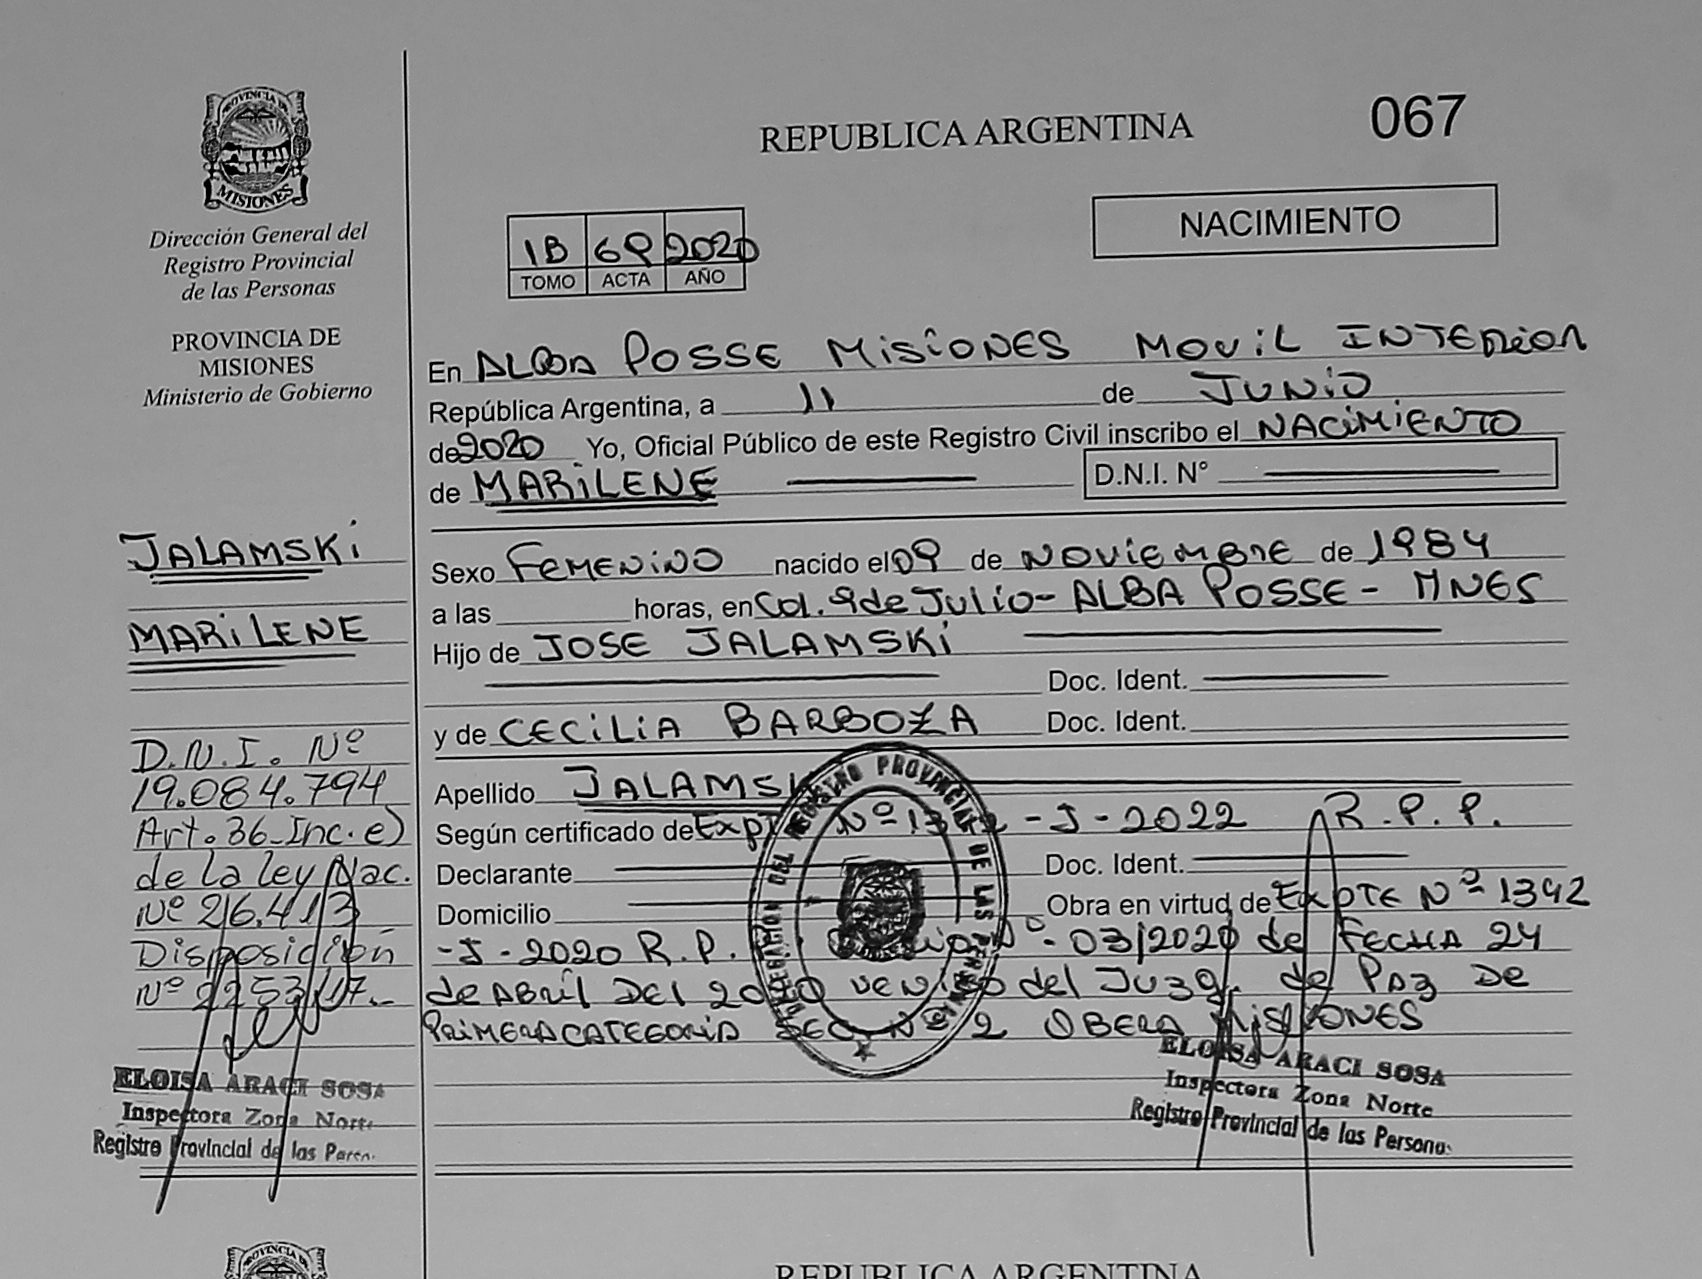 PROVINCIA DE
MISIONES
Dirección General del
Registro Provincial
de las Personas
PROVINCIA DE
MISIONES
Ministerio de Gobierno
REPUBLICA ARGENTINA
067
NACIMIENTO
1B 69 2020
TOMO ACTA AÑO
En ALBA POSSE MISIONES MOVIL INTERIOR
República Argentina, a 11 de JUNIO
de 2020 Yo, Oficial Público de este Registro Civil inscribo el NACIMIENTO
de MARILENE D.N.I. N°
Sexo FEMENINO nacido el 09 de NOVIEMBRE de 1984
a las horas, en Col. 9 de Julio - ALBA POSSE - MNES
Hijo de JOSE JALAMSKI
Doc. Ident.
y de CECILIA BARBOZA Doc. Ident.
Apellido JALAMSKI
Según certificado de Expte Nº 1342 - J - 2022 R.P.P.
Declarante Doc. Ident.
Domicilio Obra en virtud de EXPTE Nº 1392
-J-2020 R.P. Nº 03/2020 de FECHA 24
de ABRIL DEL 2020 del JUZG. de PAZ DE
PRIMERA CATEGORIA SEC Nº 2 OBERA MISIONES
JALAMSKI
MARILENE
D.N.I. Nº
19.084.794
Art. 36 - Inc. e)
de la ley Nac.
Nº 26.413
Disposición
Nº 2253/17.-
ELOISA ARACI SOSA
Inspectora Zona Norte
Registro Provincial de las
ELOISA ARACI SOSA
Inspectora Zona Norte
Registro Provincial de las Persona
DEL REGISTRO PROVINCIAL DE LAS PERSONAS
PROVINCIA DE
REPUBLICA ARGENTINA